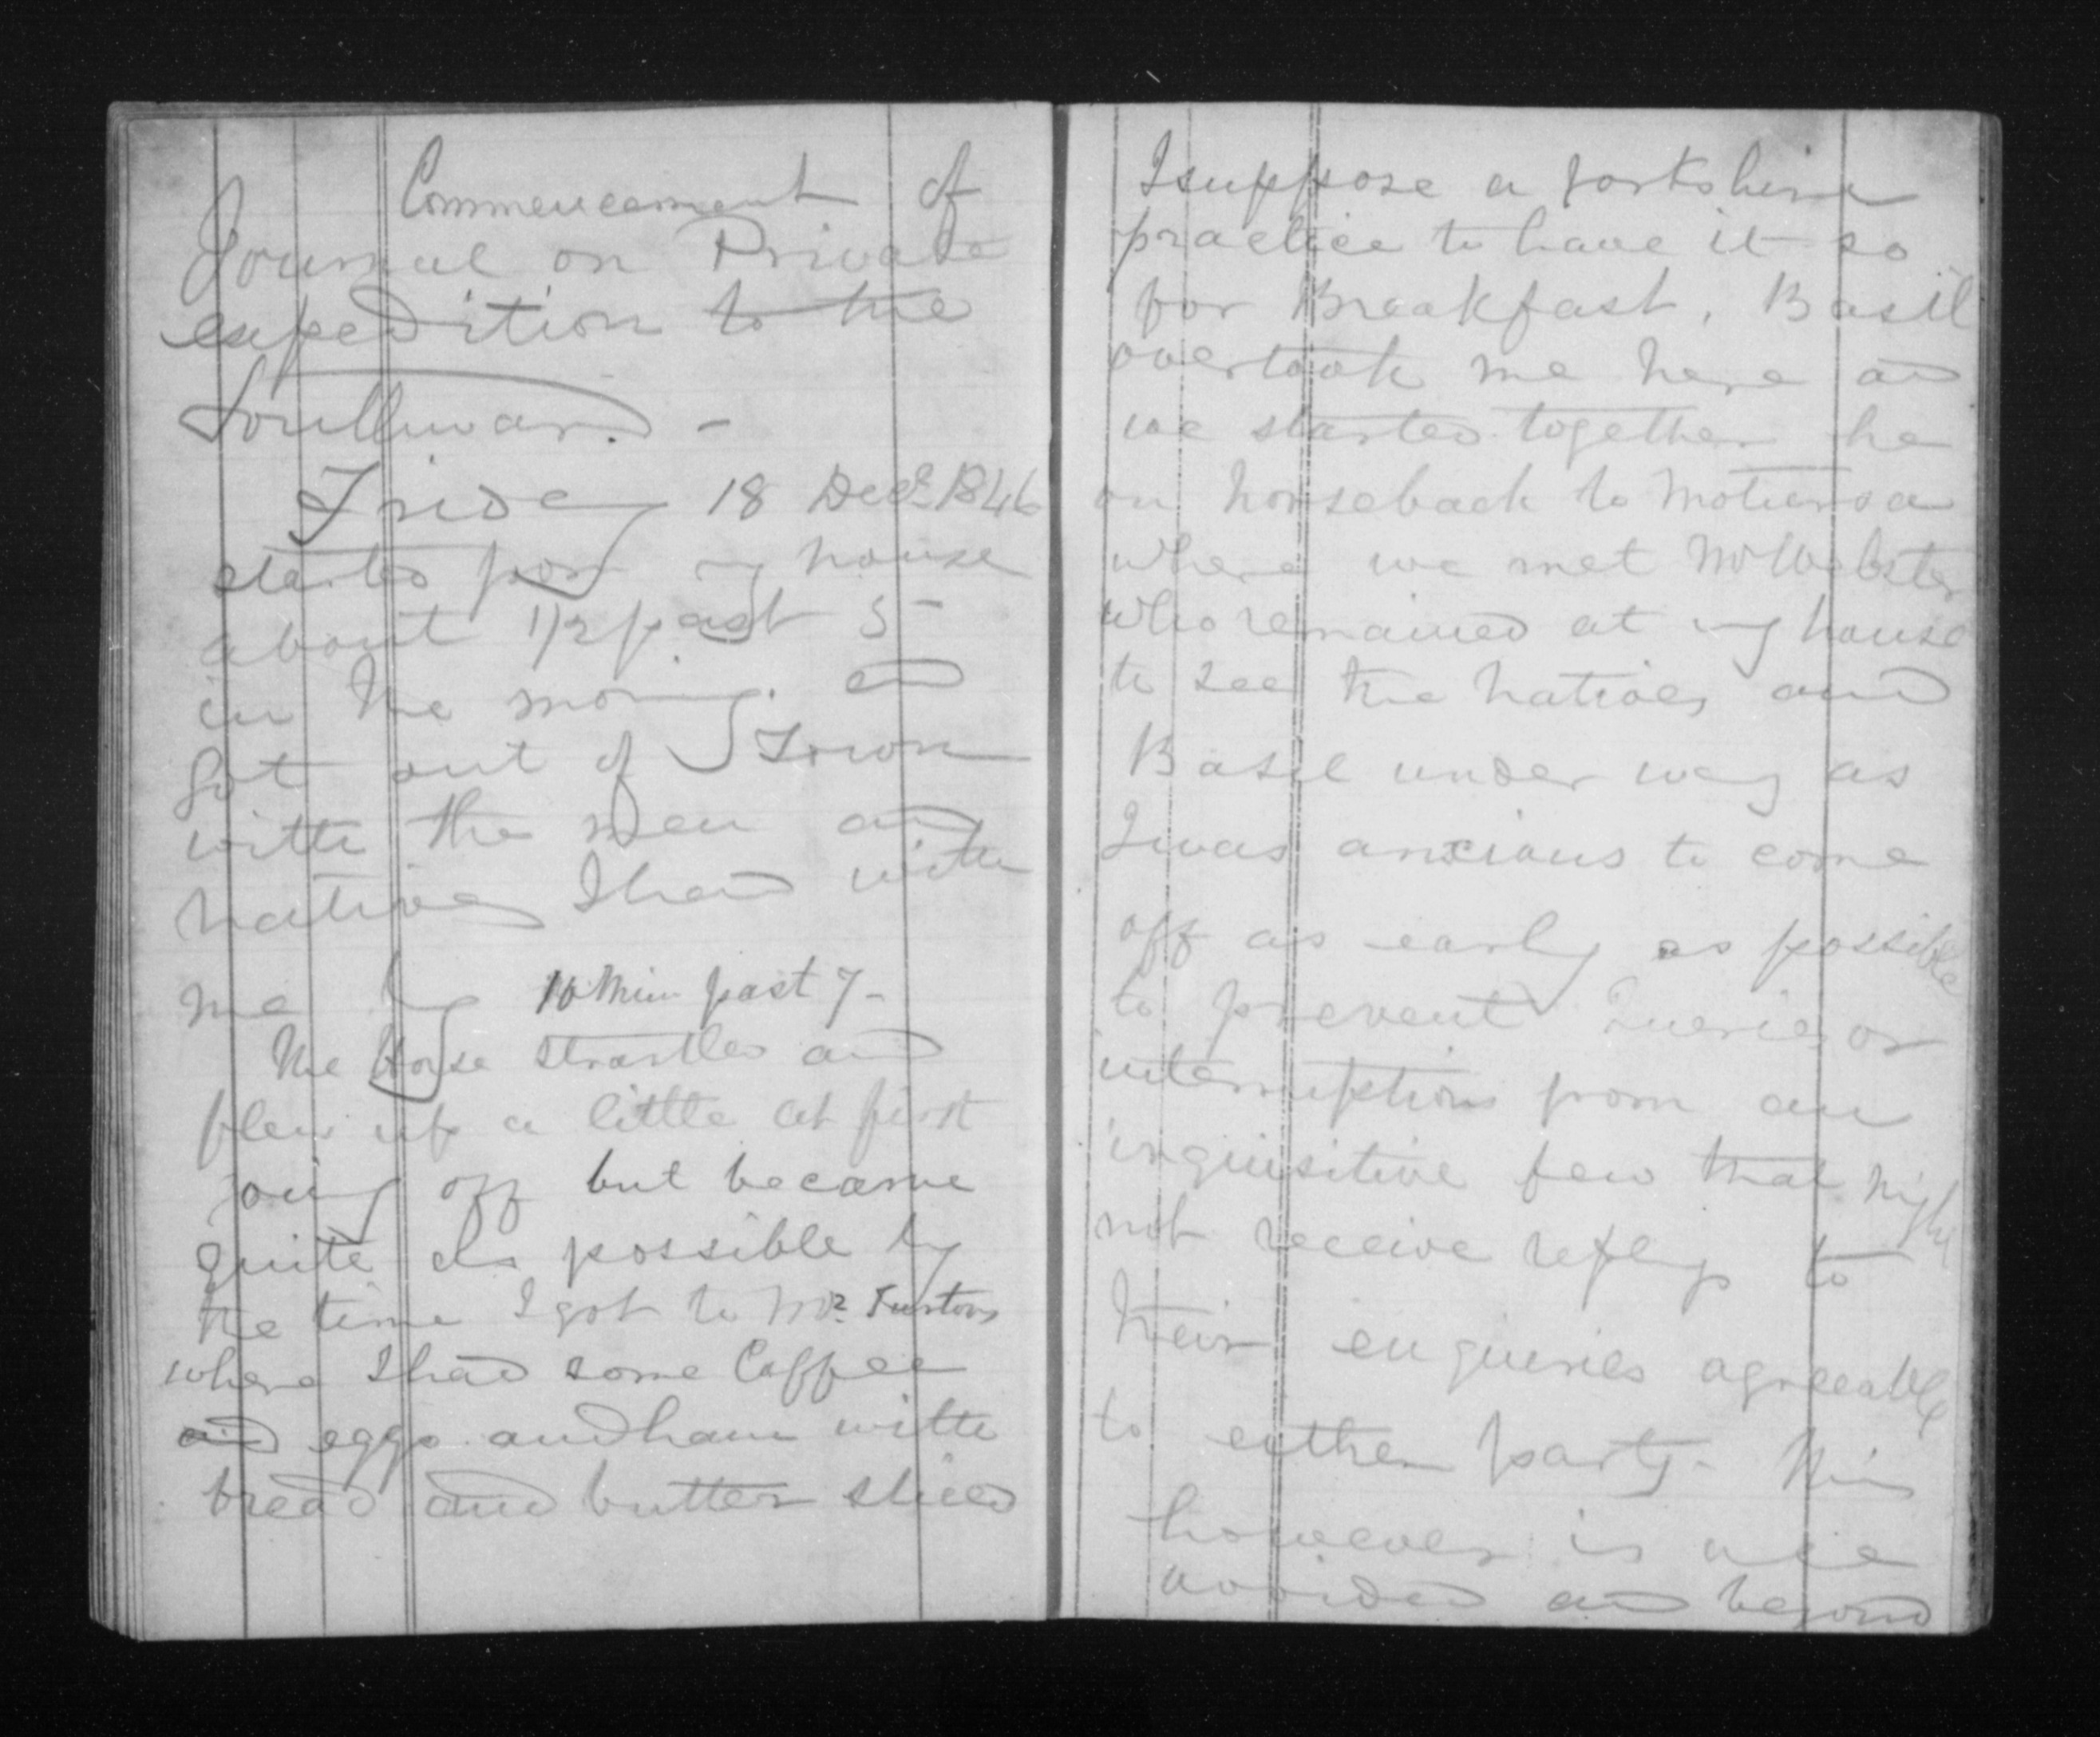 Commencement of
Journal on Private
expedition to the
Southward. -
Friday 18 Decr. 1846
started from my house
about 1/2 past 5 -
in the morning. and
got out of Town
with the men and
natives I had with
me by 10 Min past 7 -
The Horse startled and
flew up a little at first
going off but became
quite as possible by
the time I got to Mr.
where I had some Coffee
and eggs and ham with
bread and butter sliced
I suppose a Yorkshire
practice to have it so
for Breakfast. Basil
overtook me here and
we started together he
on horseback to
where we met Mr Webster
who remained at my house
to see the natives and
Basil under way as
I was anxious to come
off as early as possible
to prevent Queries or
interruptions from an
inquisitive few that might
not receive replys to
their enquiries agreeable
to either party -
however is
avoided and beyond